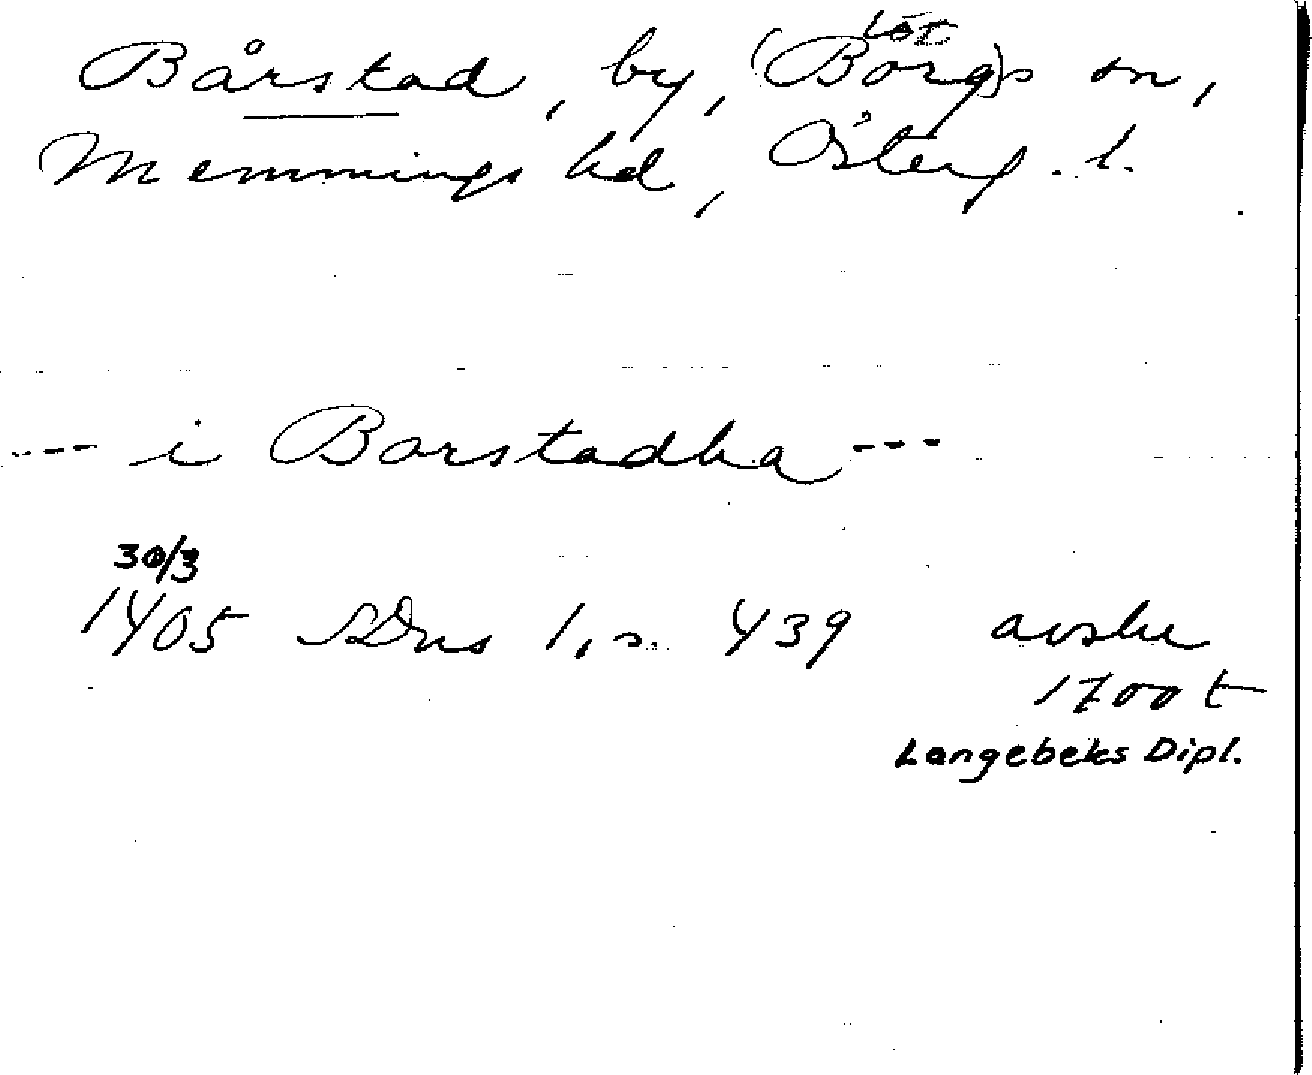 Löt
Bårstad, by, (Borg)s sn,
Memmings hd, Österg. l.
--- i Barstadha ---
30/3
1405 SDns 1, s. 439 avskr
1700 t
Langebeks Dipl.